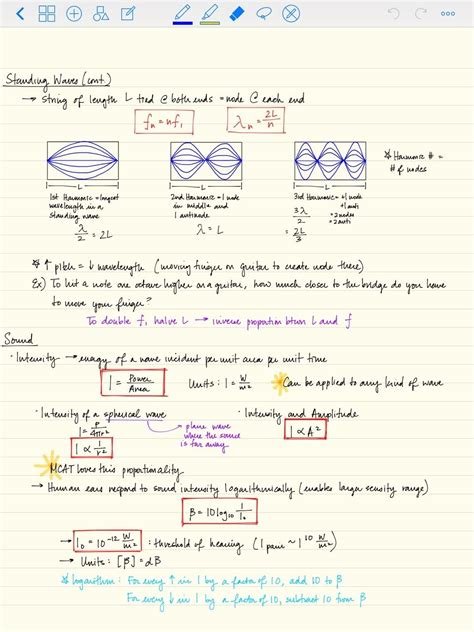 Standing Waves (cont.)
→ string of length L tied @ both ends = node @ each end
fn = nf1
λn = 2L/n
* Harmonic # = # of nodes
L
L
L
1st Harmonic = longest wavelength in a standing wave
λ/2 = 2L
2nd Harmonic = 1 node in middle and 1 antinode
λ = L
3rd Harmonic = +1 node
+1 anti
3λ/2 = 2 nodes
2 anti
= 2L/3
* ↑ pitch = ↓ wavelength (moving finger on guitar to create node there)
Ex) To hit a note one octave higher on a guitar, how much closer to the bridge do you have
to move your finger?
To double f, halve L → inverse proportion btwn L and f
Sound
· Intensity → energy of a wave incident per unit area per unit time
I = Power/Area
Units: I = W/m²
* Can be applied to any kind of wave
· Intensity of a spherical wave
I = P/4πr²
I ∝ 1/r²
→ plane wave where the source is far away
· Intensity and Amplitude
I ∝ A²
* MCAT loves this proportionality
→ Human ears respond to sound intensity logarithmically (enables larger range)
β = 10 log10 I/I0
→ I0 = 10⁻¹² W/m² : threshold of hearing (I pain ~ W/m²)
→ Units: [β] = dB
* logarithm: For every ↑ in I by a factor of 10, add 10 to β
For every ↓ in I by a factor of 10, subtract 10 from β